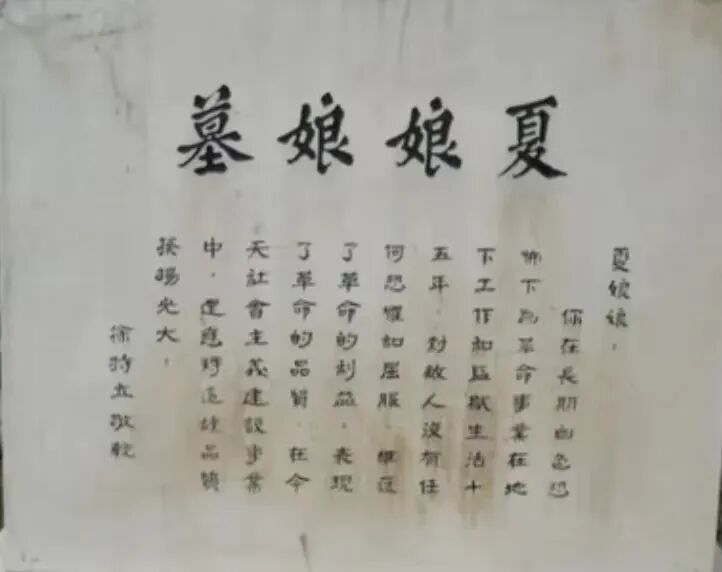 夏娘娘墓
夏娘娘，
你在長期白色恐
怖下為革命事業在地
下工作和監獄生活十
五年，對敵人沒有任
何恐懼和屈服，維護
了革命的利益，表現
了革命的品質，在今
天社會主義建設事業
中，還應將這種品質
發揚光大，
徐特立敬輓